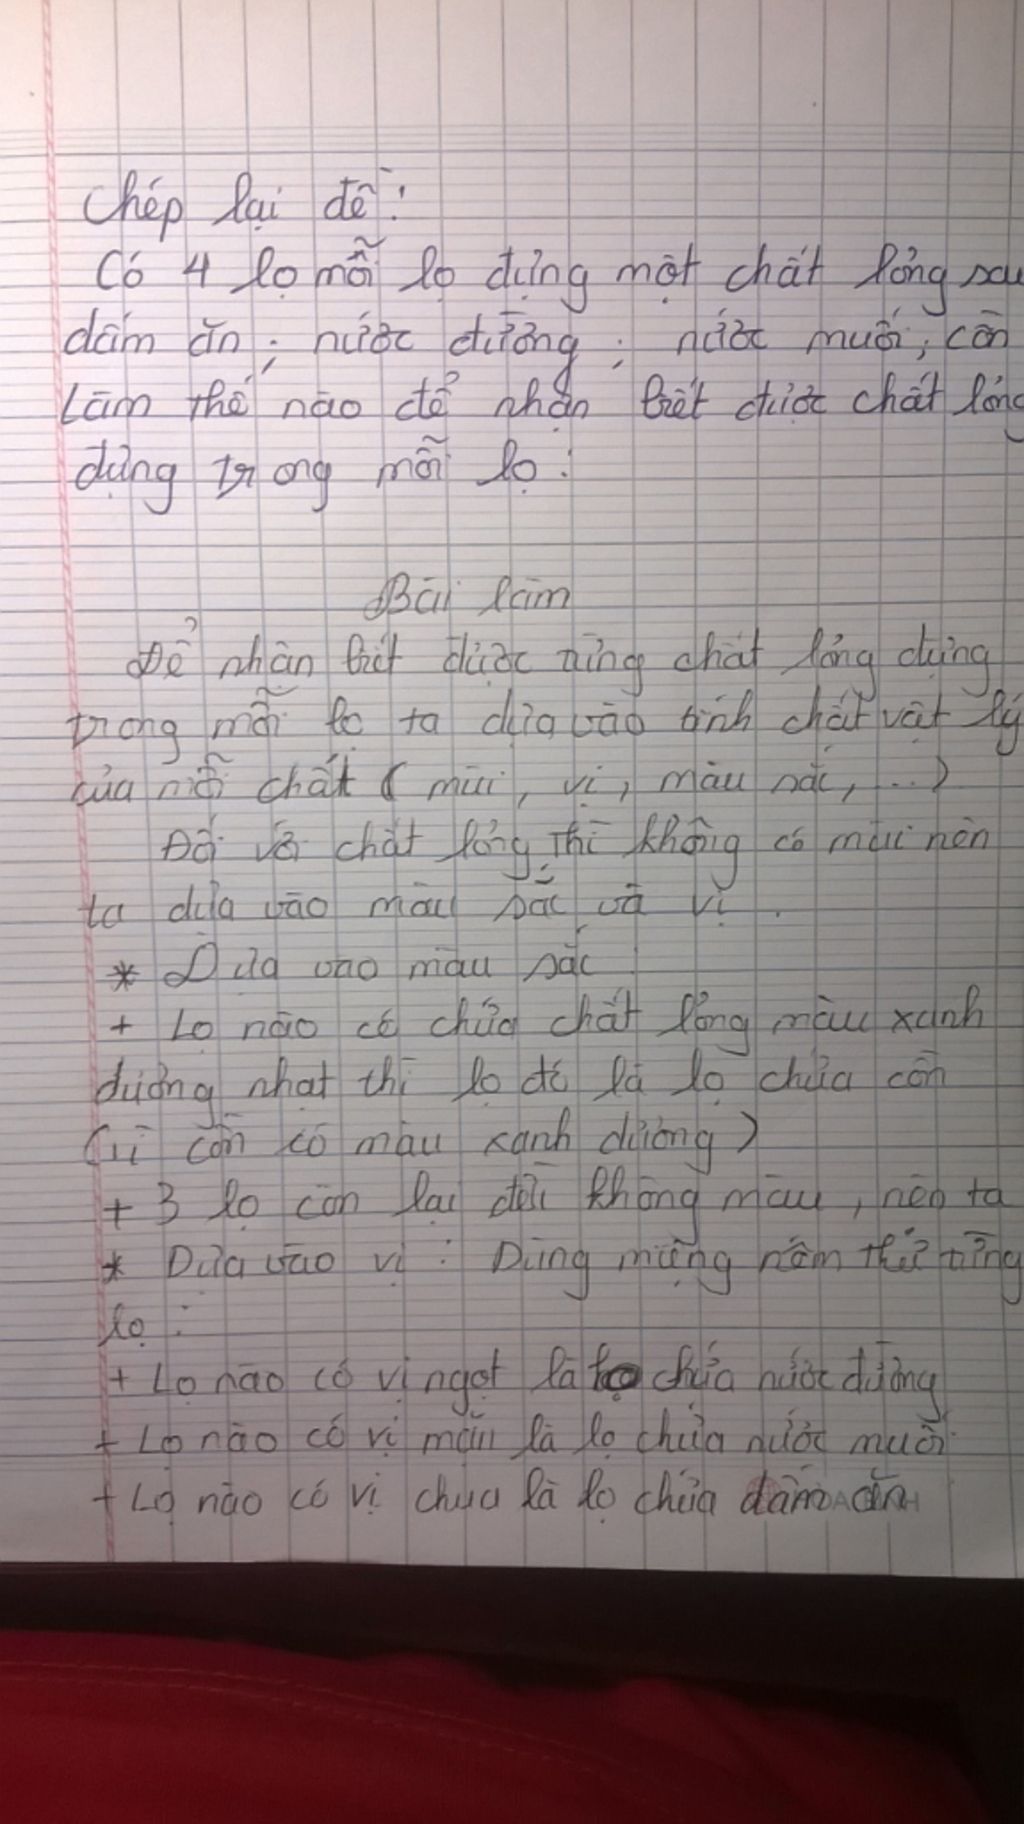 Chép lại đề:
Có 4 lọ mỗi lọ đựng một chất lỏng sau
dấm ăn; nước đường; nước muối; cồn
Làm thế nào để nhận biết được chất lỏng
đựng trong mỗi lọ.
Bài làm
Để nhận biết được từng chất lỏng đựng
trong mỗi lọ ta dựa vào tính chất vật lý
của mỗi chất (mùi, vị, màu sắc, ...)
Đối với chất lỏng thì không có mùi nên
ta dựa vào màu sắc và vị.
* Dựa vào màu sắc
+ Lọ nào có chứa chất lỏng màu xanh
dương nhạt thì lọ đó là lọ chứa cồn
(vì cồn có màu xanh dương)
+ 3 lọ còn lại đều không màu, nên ta
* Dựa vào vị: Dùng miệng nếm thử từng
lọ:
+ Lọ nào có vị ngọt là lọ chứa nước đường
+ Lọ nào có vị mặn là lọ chứa nước muối
+ Lọ nào có vị chua là lọ chứa dấm ăn